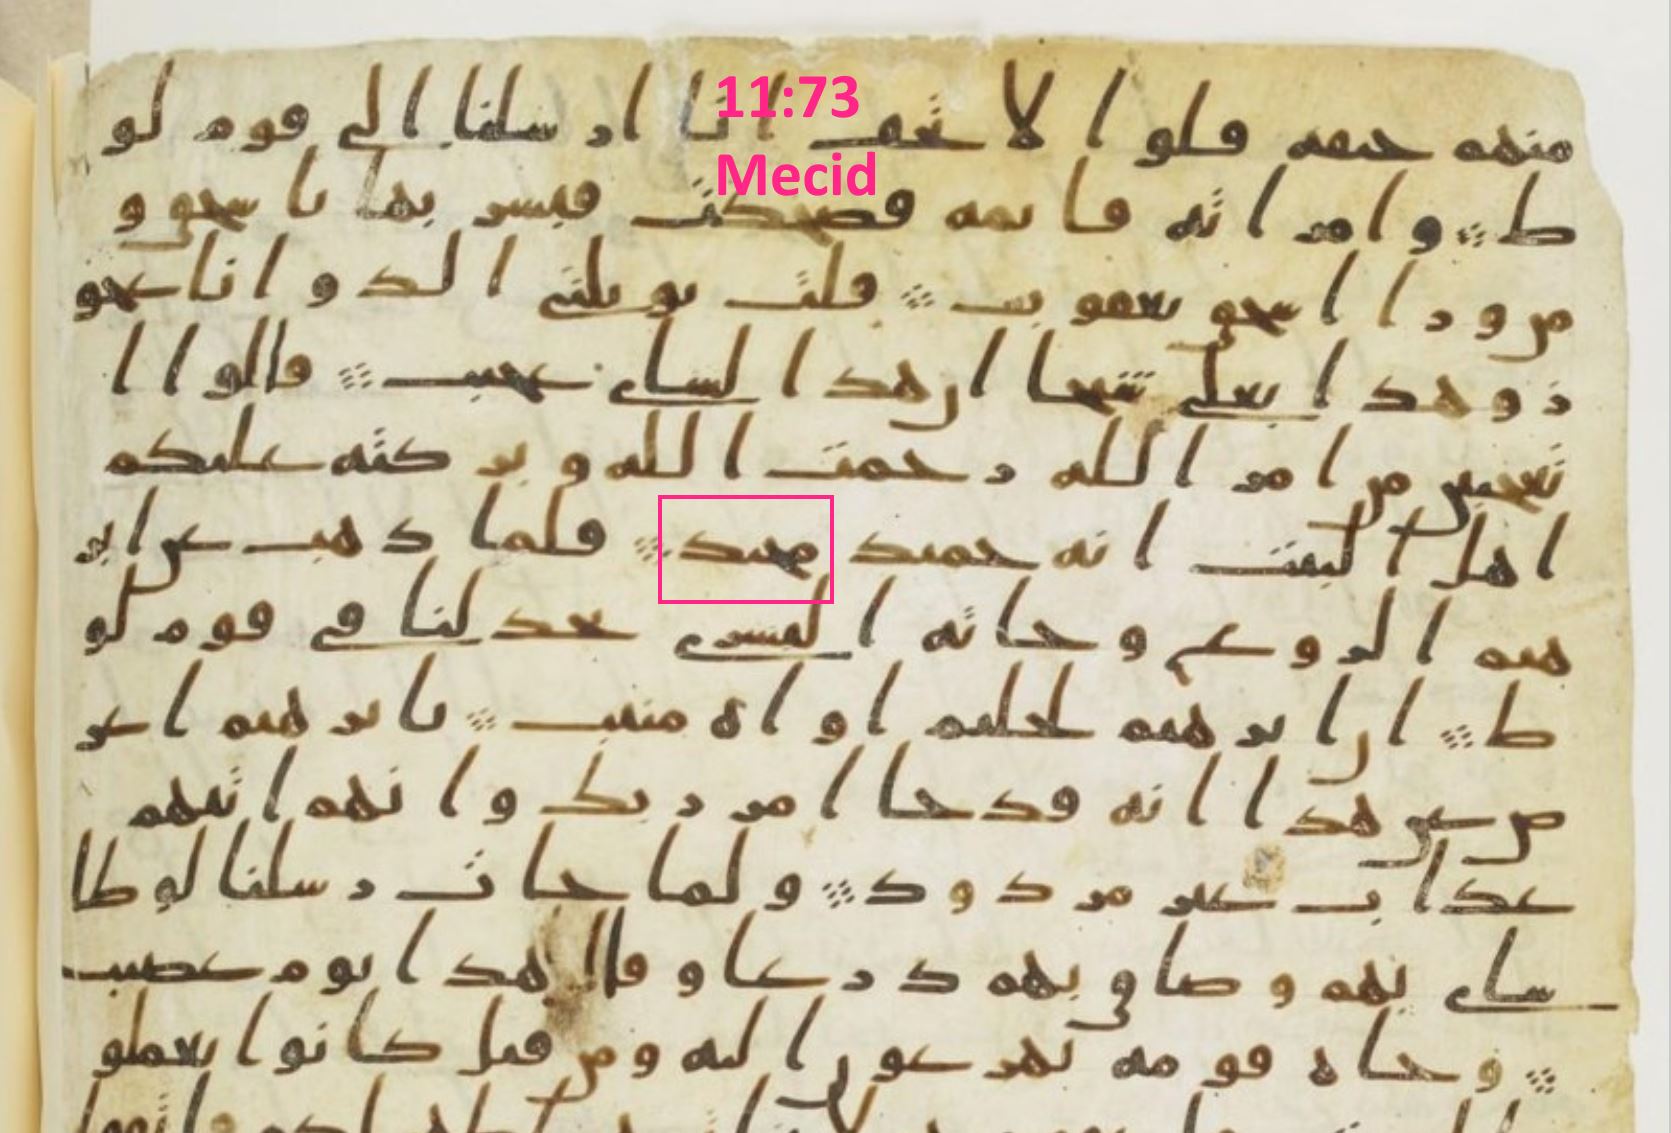 11:73
Mecid
منهم خيفه قلوا لا تخف انا ارسلنا الى قوم لو
ط وامراته قائمه فضحكت فبشرنها باسحق و
من ورا اسحق يعقوب قلت يويلتى الد وانا عجو
ز وهذا بعلى شيخا ان هذا لشاى عجيب قالوا ا
تعجبين من امر الله رحمت الله وبركته عليكم
اهل البيت انه حميد مجيد فلما ذهب عن ابر
هيم الروع وجاته البشرى يجدلنا فى قوم لو
ط ان ابرهيم لحليم اواه منيب يابرهيم اعر
ض عن هذا انه قد جا امر ربك وانهم اتيهم
عذاب غير مردود ولما جات رسلنا لوطا
ساى بهم وضاق بهم ذرعا وقال هذا يوم عصيب
وجاه قومه يهرعون اليه ومن قبل كانوا يعملو